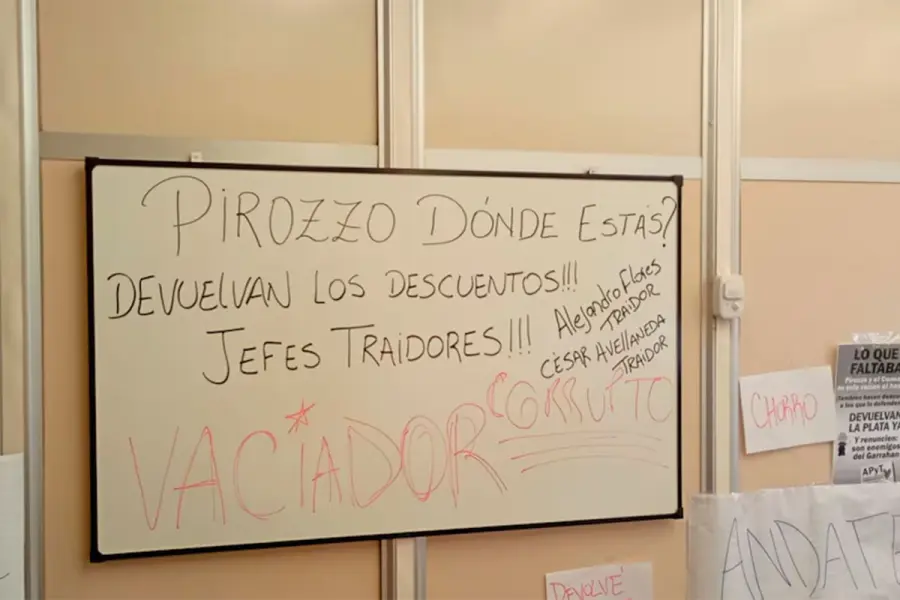 PIROZZO DÓNDE ESTÁS?
DEVUELVAN LOS DESCUENTOS!!!
JEFES TRAIDORES!!!
Alejandro Flores
TRAIDOR
CÉSAR AVELLANEDA
TRAIDOR
VACIADOR CORRUPTO
CHORRO
LO QUE
FALTABA
Pirozzo y el
DEVUELVAN
LA PLATA YA
Y renuncien:
son enemigos
del Garrahan
APyT
ANDATE
DEVOLVÉ